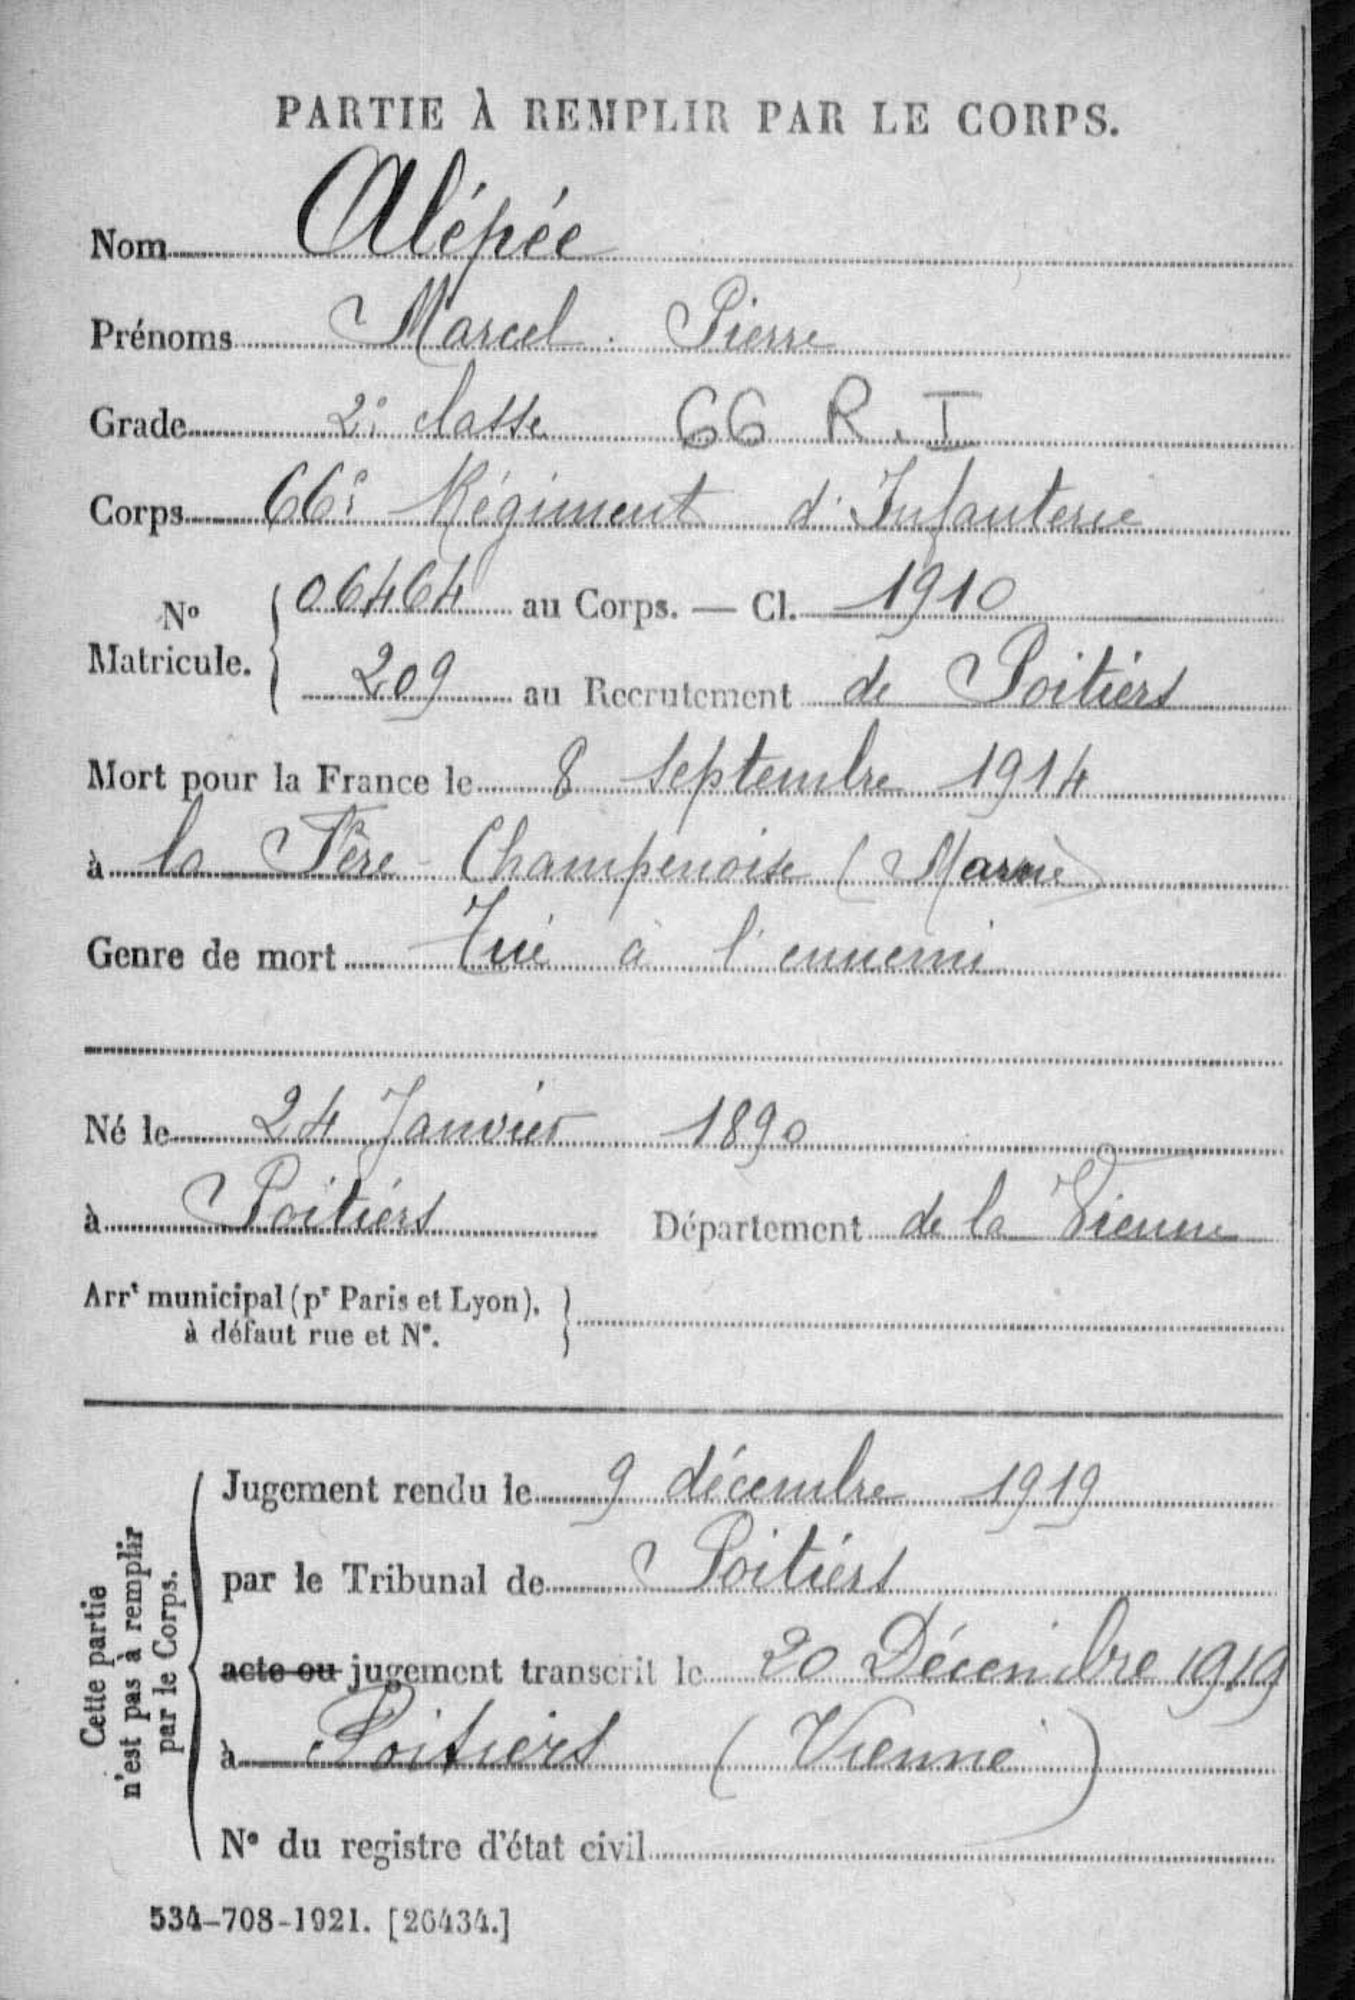 PARTIE À REMPLIR PAR LE CORPS.
Nom Alépée
Prénoms Marcel Pierre
Grade 2e classe 66 R.I
Corps 66e Régiment d'Infanterie
No Matricule. { 06464 au Corps. — Cl. 1910
209 au Recrutement de Poitiers
Mort pour la France le 8 septembre 1914
à la Fère-Champenoise (Marne)
Genre de mort Tué à l'ennemi
Né le 24 Janvier 1890
à Poitiers Département de la Vienne
Arrt municipal (pr Paris et Lyon), }
à défaut rue et No.
Cette partie
n'est pas à remplir
par le Corps.
Jugement rendu le 9 décembre 1919
par le Tribunal de Poitiers
acte ou jugement transcrit le 20 Décembre 1919
à Poitiers (Vienne)
No du registre d'état civil
534-708-1921. [26434.]